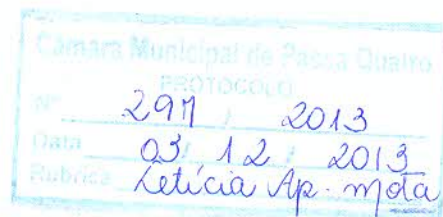 Câmara Municipal de Passa Quatro
PROTOCOLO
Nº 297 / 2013
Data 03 / 12 / 2013
Rubrica Letícia Ap. Mota